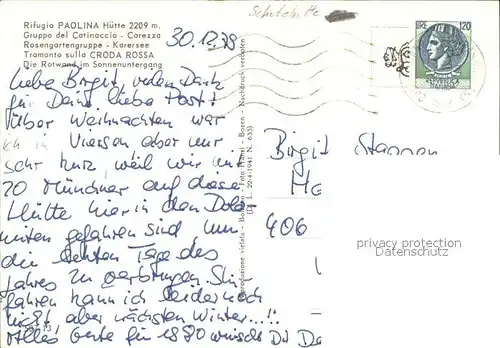 Rifugio PAOLINA Hütte 2209 m.
Gruppo del Catinaccio - Carezza
Rosengartengruppe - Karersee
Tramonto sulla CRODA ROSSA
Die Rotwand im Sonnenuntergang
30.12.79
LIRE 120
Liebe Birgit, vielen Dank
für Deine liebe Post!
Über Weihnachten war
ich in Viersen aber nur
sehr kurz, weil wir mit
20 Münchner auf diese
Hütte hier in den Dolo
miten gefahren sind um
die letzten Tage des
Jahres zu verbringen. Ski-
fahren kann ich leider noch
nicht aber nächsten Winter...!!
Alles Gute für 1980 wünscht Dir
Birgit
406
Riproduzione vietata - Bolzano - Foto - Bozen - Nachdruck verboten
(D. L. 22-4-1941 N. 633)
privacy protection
Datenschutz